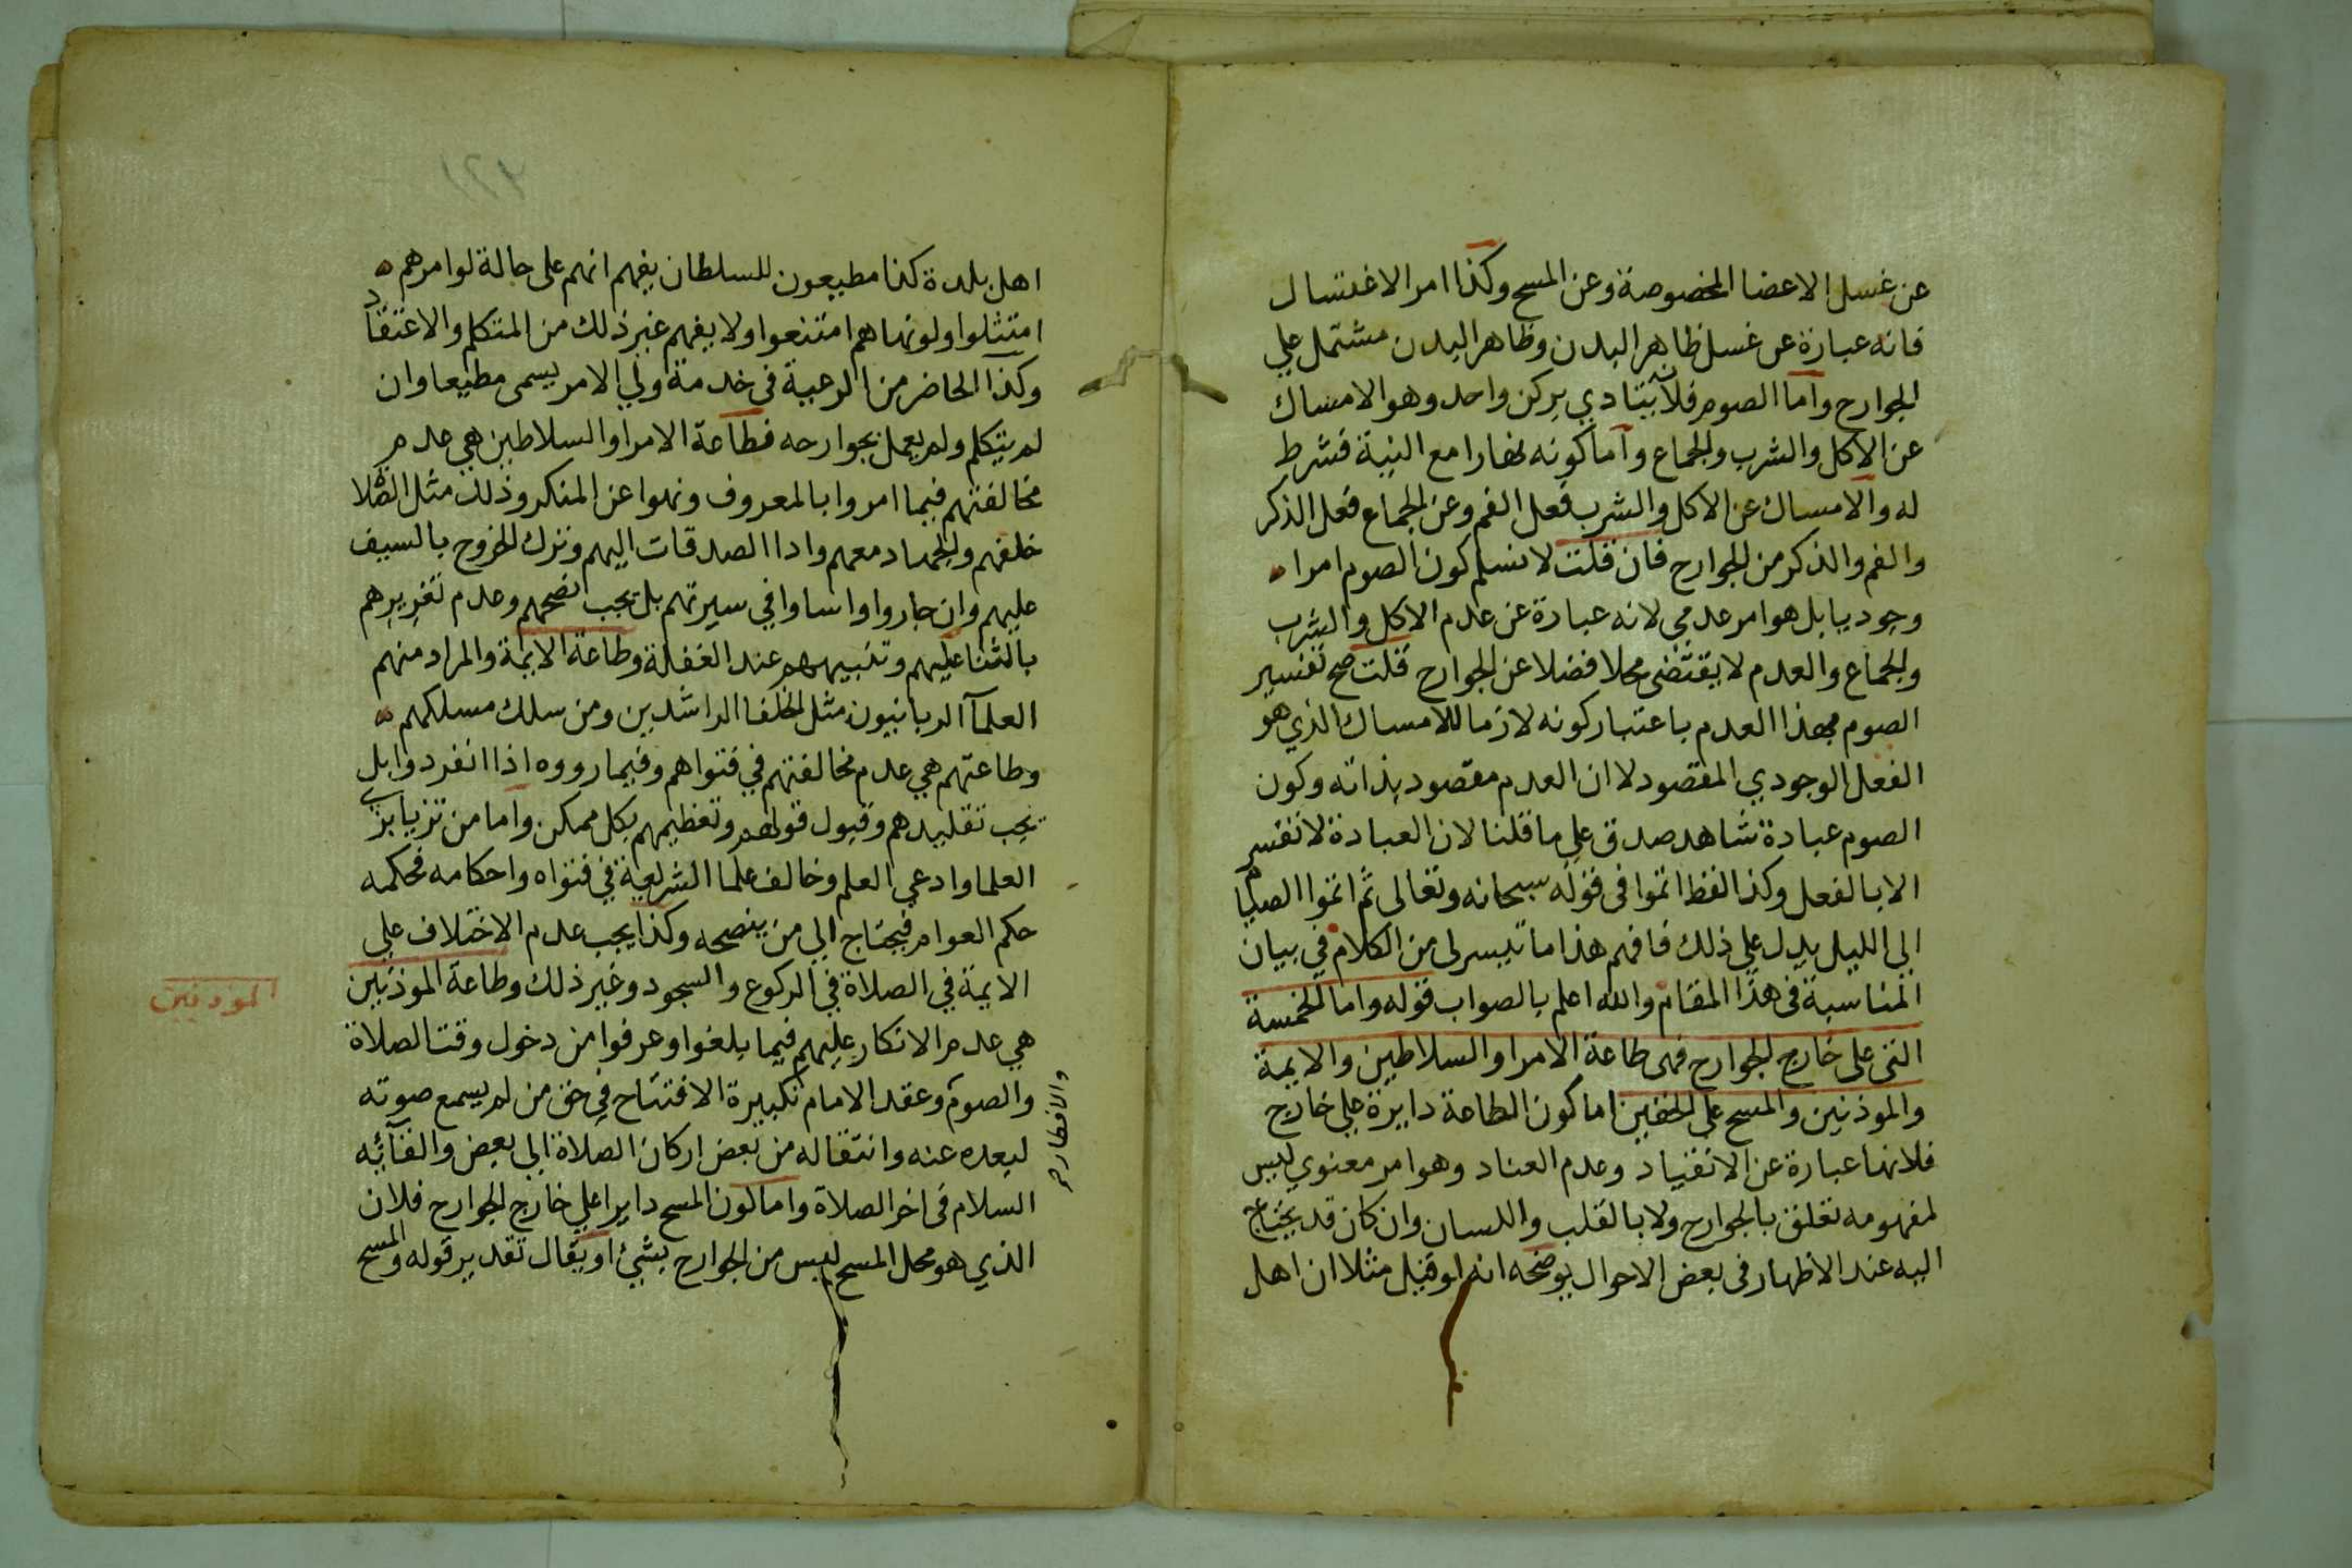 عن غسل الاعضا المخصوصة وعن المسح وكذا امر الاغتسال
فانه عبارة عن غسل ظاهر البدن وظاهر البدن مشتمل علي
الجوارح واما الصوم فلانه يتادي بركن واحد وهو الامساك
عن الاكل والشرب والجماع واما كونه نهارا مع النية فشرط
له والامساك عن الاكل والشرب فعل الفم وعن الجماع فعل الذكر
والفم والذكر من الجوارح فان قلت لا نسلم كون الصوم امرا
وجوديا بل هو امر عدمي لانه عبارة عن عدم الاكل والشرب
والجماع والعدم لا يقتضي محلا فضلا عن الجوارح قلت صح تفسير
الصوم بهذا العدم باعتبار كونه لازما للامساك الذي هو
الفعل الوجودي المقصود لا ان العدم مقصود بذاته وكون
الصوم عبادة شاهد صدق علي ما قلنا لان العبادة لا تفسر
الا بالفعل وكذا لفظ اتموا في قوله سبحانه وتعالى ثم اتموا الصيام
الي الليل يدل علي ذلك فافهم هذا ما تيسر لي من الكلام في بيان
المناسبة في هذا المقام والله اعلم بالصواب قوله واما الخمسة
التي على خارج الجوارح فهي طاعة الامرا والسلاطين والايمة
والموذنين والمسح على الخفين اما كون الطاعة دايرة علي خارج
فلانها عبارة عن الانقياد وعدم العناد وهو امر معنوي ليس
لمفهومه تعلق بالجوارح ولا بالقلب واللسان وان كان قد يحتاج
اليه عند الاظهار في بعض الاحوال يوضحه انه لو قيل مثلا ان اهل
اهل بلدة كذا مطيعون للسلطان يفهم انهم على حالة لو امرهم
امتثلوا ولو نهاهم امتنعوا ولا يفهم غير ذلك من المتكلم والاعتقاد
وكذا الحاضر من الرعية في خدمة ولي الامر يسمى مطيعا وان
لم يتكلم ولم يعمل بجوارحه فطاعة الامرا والسلاطين هي عدم
مخالفتهم فيما امروا بالمعروف ونهوا عن المنكر وذلك مثل الصلاة
خلفهم والجهاد معهم وادا الصدقات اليهم وترك الخروج بالسيف
عليهم وان جاروا واساوا في سيرتهم بل يجب نصحهم وعدم تغريرهم
بالثنا عليهم وتنبيههم عند الغفلة وطاعة الايمة والمراد منهم
العلمآ الربانيون مثل الخلفا الراشدين ومن سلك مسلكهم
وطاعتهم هي عدم مخالفتهم في فتواهم وفيما رووه اذا انفردوا بل
يجب تقليدهم وقبول قولهم وتعظيمهم بكل ممكن واما من تزيا بزي
العلما وادعي العلم وخالف علما الشريعة في فتواه واحكامه فحكمه
حكم العوام فيحتاج الي من ينصحه وكذا يجب عدم الاختلاف علي
الايمة في الصلاة في الركوع والسجود وغير ذلك وطاعة الموذنين
الموذنين
هي عدم الانكار عليهم فيما بلغوا وعرفوا من دخول وقت الصلاة
والصوم وعقد الامام تكبيرة الافتتاح في حق من لم يسمع صوته
والافطار صح
لبعده عنه وانتقاله من بعض اركان الصلاة الي بعض والقآئه
السلام في اخر الصلاة واما كون المسح دايرا علي خارج الجوارح فلان
الذي هو محل المسح ليس من الجوارح بشيئ او يقال تقدير قوله والمسح